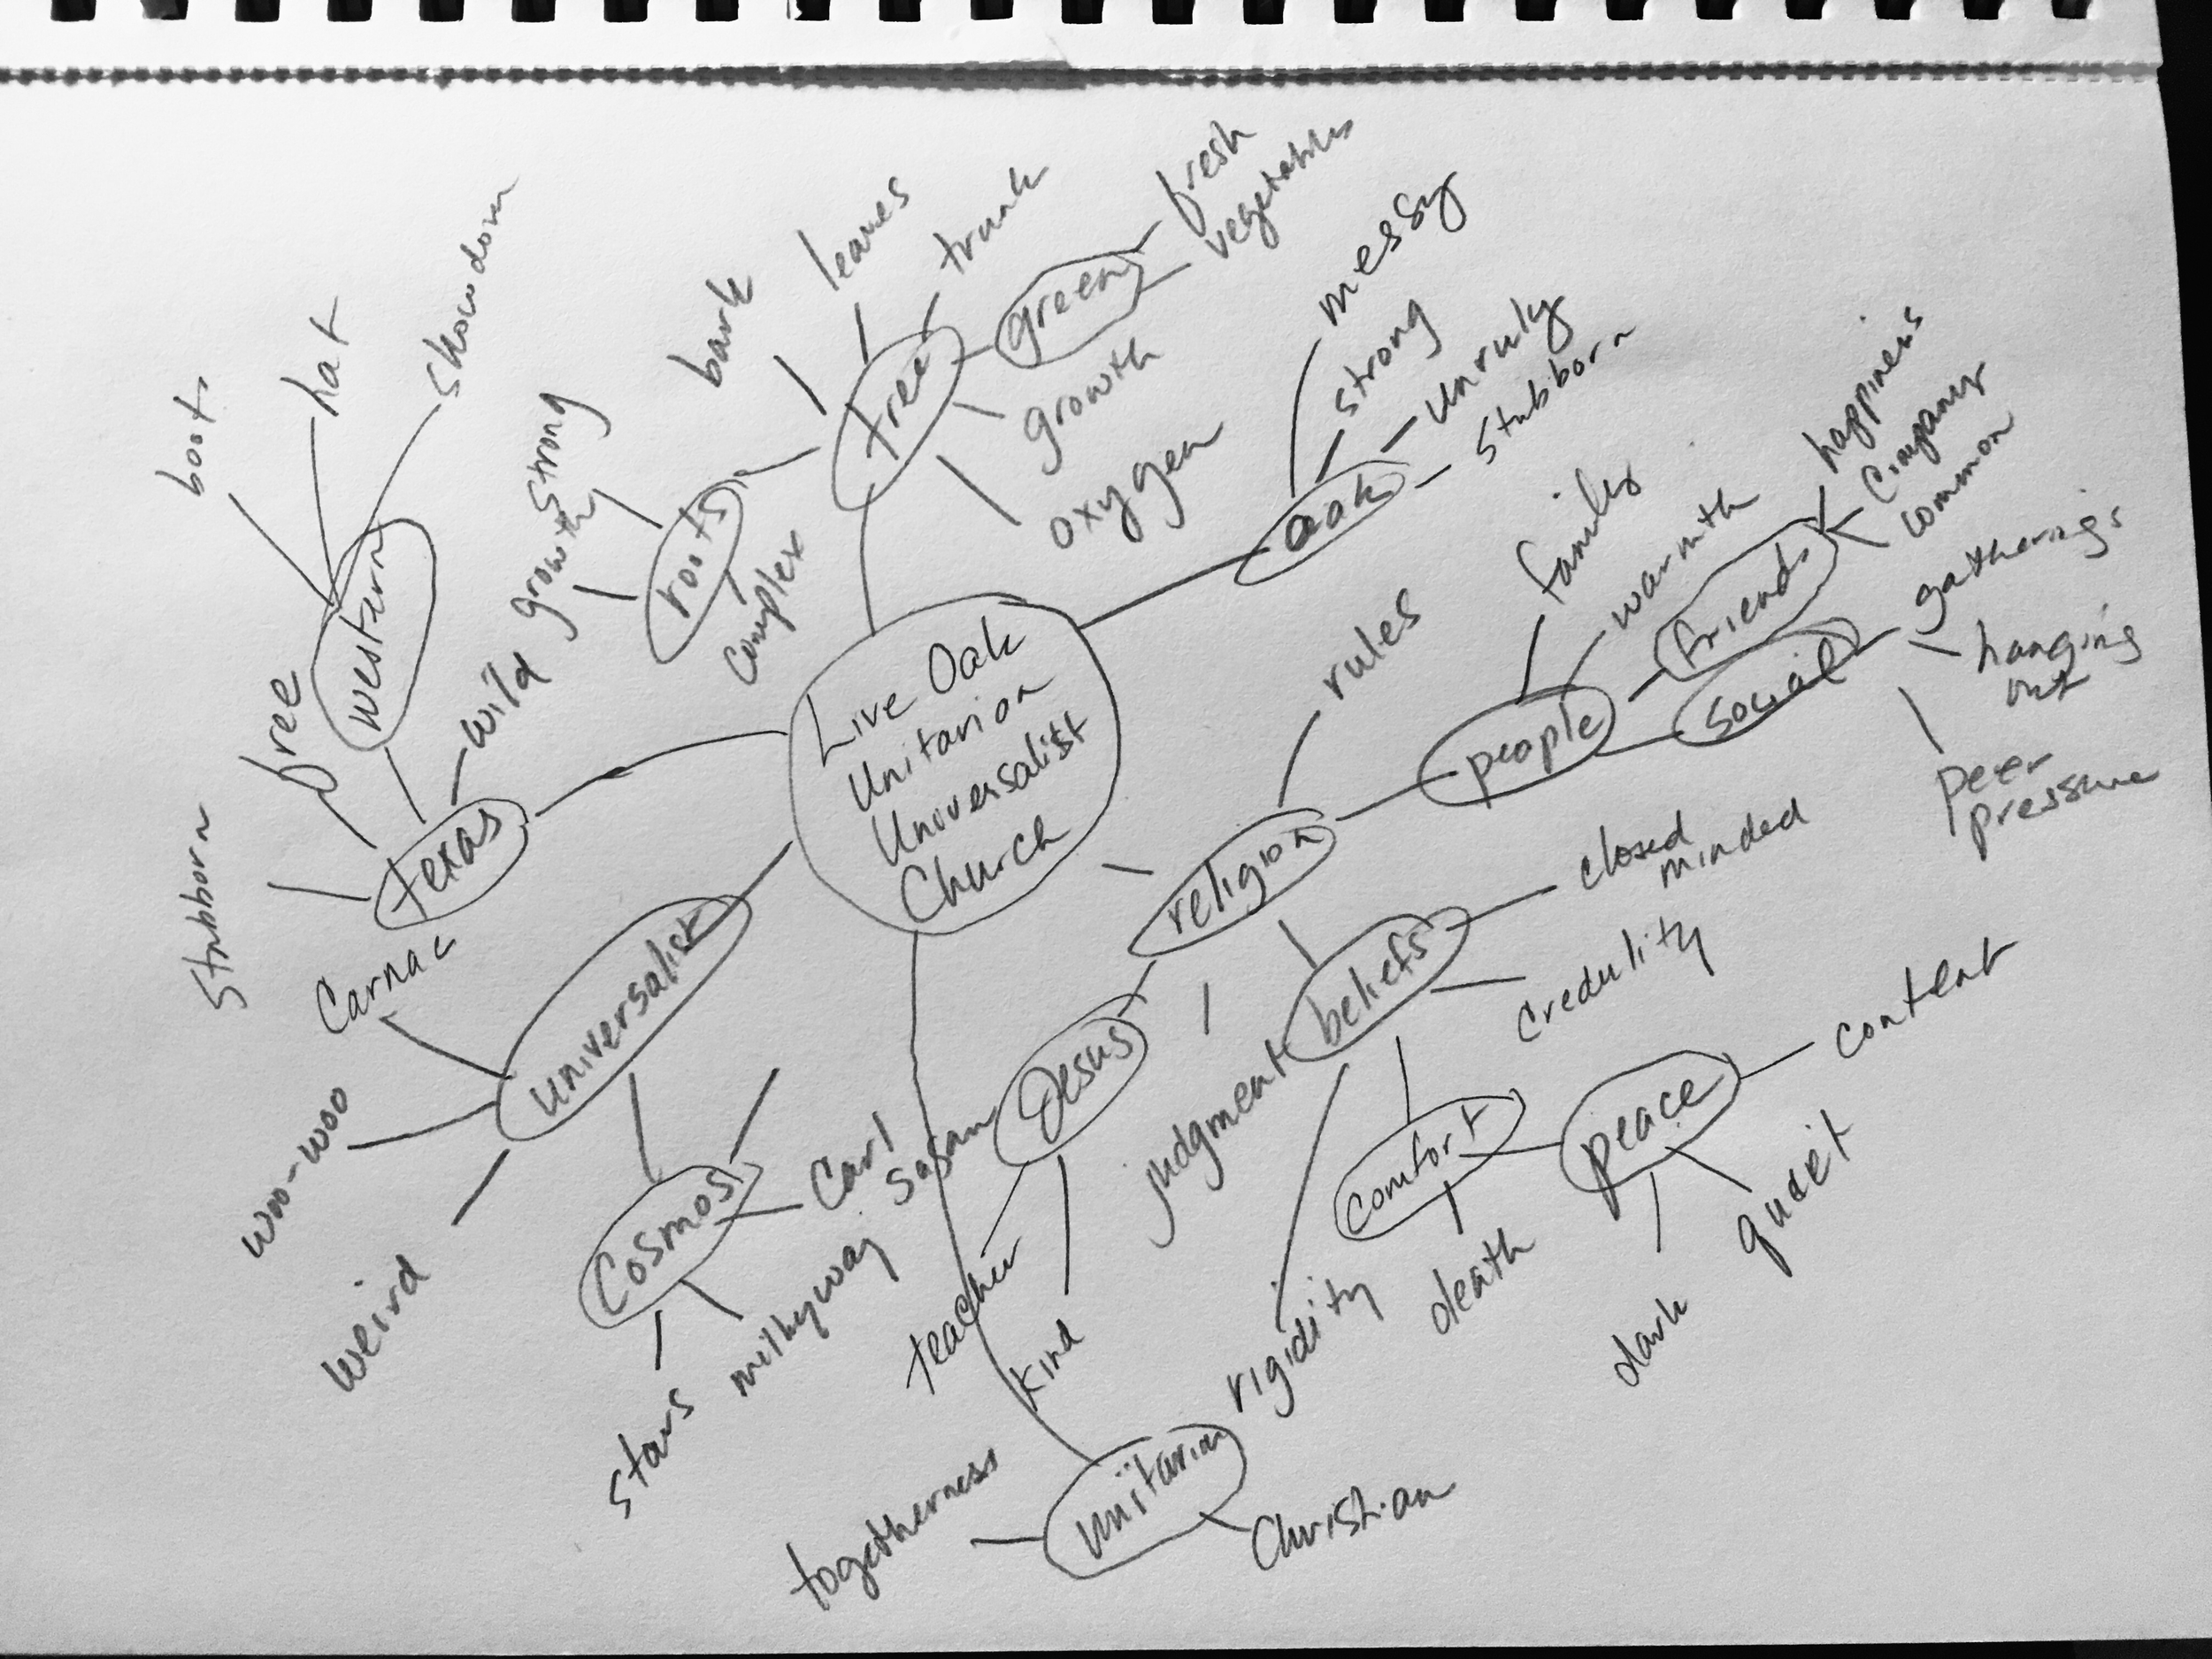 Live Oak
Unitarion
Universalist
Church
tree
bark
leaves
trunk
green
fresh
vegetables
growth
oxygen
roots
strong
growth
complex
oak
messy
strong
unruly
stubborn
texas
western
boots
hat
showdown
wild
free
Stubborn
universalist
Carnac
woo-woo
weird
Cosmos
Carl
Sagan
milkyway
stars
religion
rules
people
family
warmth
friends
happiness
Company
common
social
gatherings
hanging
out
peer
pressure
beliefs
closed
minded
credulity
comfort
death
peace
content
quieit
dark
rigidity
judgment
Jesus
teacher
kind
unitarian
togetherness
Christian